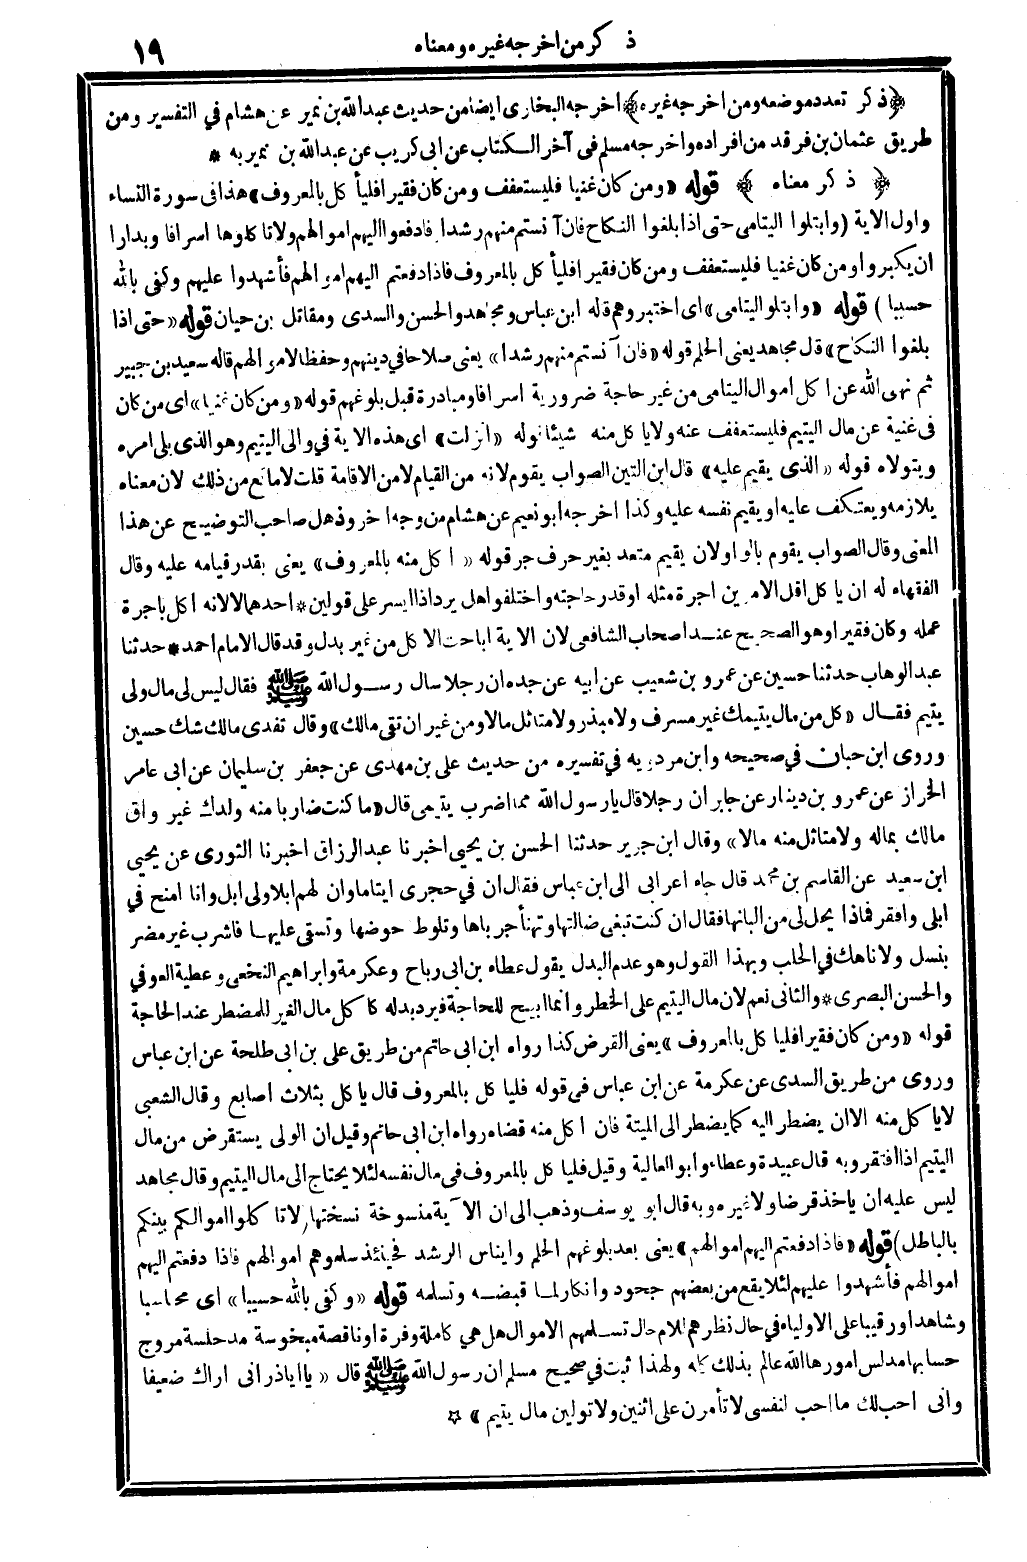 ذكر من اخرجه غيره ومعناه ١٩
﴿ذكر تعدد موضعه ومن اخرجه غيره﴾ اخرجه البخارى ايضا من حديث عبدالله بن نمير عن هشام في التفسير ومن
طريق عثمان بن فرقد من افراده واخرجه مسلم فى آخر الكتاب عن ابى كريب عن عبدالله بن نمير به *
﴿ذكر معناه﴾ قوله «ومن كان غنيا فليستعفف ومن كان فقيرا فليأ كل بالمعروف» هذا فى سورة النساء
واول الاية (وابتلوا اليتامى حتى اذا بلغوا النكاح فان آنستم منهم رشدا فادفعوا اليهم اموالهم ولا تا كلوها اسرافا وبدارا
ان يكبروا ومن كان غنيا فليستعفف ومن كان فقيرا فليأ كل بالمعروف فاذا دفعتم اليهم اموالهم فأشهدوا عليهم وكفى بالله
حسيبا) قوله «وابتلوا اليتامى» اى اختبروهم قاله ابن عباس ومجاهد والحسن والسدى ومقاتل بن حيان قوله «حتى اذا
بلغوا النكاح» قال مجاهد يعنى الحلم قوله «فان آنستم منهم رشدا» يعنى صلاحا فى دينهم وحفظا لاموالهم قاله سعيد بن جبير
ثم نهى الله عن ا كل اموال اليتامى من غير حاجة ضرورية اسرافا ومبادرة قبل بلوغهم قوله «ومن كان غنيا» اى من كان
فى غنية عن مال اليتيم فليستعفف عنه ولا يا كل منه شيئا قوله «انزلت» اى هذه الاية فى والى اليتيم وهو الذى يلى امره
ويتولاه قوله «الذى يقيم عليه» قال ابن التين الصواب يقوم لانه من القيام لا من الاقامة قلت لا مانع من ذلك لان معناه
يلازمه ويعتكف عليه او يقيم نفسه عليه وكذا اخرجه ابو نعيم عن هشام من وجه اخر وذهل صاحب التوضيح عن هذا
المعنى وقال الصواب يقوم بالواو لان يقيم متعد بغير حرف جر قوله «ا كل منه بالمعروف» يعنى بقدر قيامه عليه وقال
الفقهاء له ان يا كل اقل الامرين اجرة مثله او قدر حاجته واختلفوا هل يرد اذا ايسر على قولين * احدهما لا لانه اكل باجرة
عمله وكان فقيرا وهو الصحيح عند اصحاب الشافعى لان الاية اباحت الاكل من غير بدل وقد قال الامام احمد * حدثنا
عبدالوهاب حدثنا حسين عن عمرو بن شعيب عن ابيه عن جده ان رجلا سال رسول الله ﷺ فقال ليس لى مال ولى
يتيم فقال «كل من مال يتيمك غير مسرف ولا مبذر ولا متاثل مالا ومن غير ان تقى مالك» وقال تفدى مالك شك حسين
وروى ابن حبان في صحيحه وابن مردويه فى تفسيره من حديث على بن مهدى عن جعفر بن سليمان عن ابى عامر
الخراز عن عمرو بن دينار عن جابر ان رجلا قال يا رسول الله مما اضرب يتيمى قال «ما كنت ضاربا منه ولدك غير واق
مالك بماله ولا متاثل منه مالا» وقال ابن جرير حدثنا الحسن بن يحيى اخبرنا عبدالرزاق اخبرنا الثورى عن يحيى
ابن سعيد عن القاسم بن محمد قال جاء اعرابى الى ابن عباس فقال ان في حجرى ايتاما وان لهم ابلا ولى ابل وانا امنح في
ابلى وافقر فماذا يحل لى من البانها فقال ان كنت تبغى ضالتها وتهنأ جرباها وتلوط حوضها وتسقى عليها فاشرب غير مضر
بنسل ولا ناهك في الحلب وبهذا القول وهو عدم البدل يقول عطاء بن ابى رباح وعكرمة وابراهيم النخعى وعطية العوفي
والحسن البصرى * والثانى نعم لان مال اليتيم على الخطر وانما ابيح للحاجة فيرد بدله كا كل مال الغير للمضطر عند الحاجة
قوله «ومن كان فقيرا فليا كل بالمعروف» يعنى القرض كذا رواه ابن ابى حاتم من طريق على بن ابى طلحة عن ابن عباس
وروى من طريق السدى عن عكرمة عن ابن عباس فى قوله فليا كل بالمعروف قال يا كل بثلاث اصابع وقال الشعبى
لا يا كل منه الا ان يضطر اليه كما يضطر الى الميتة فان ا كل منه قضاه رواه ابن ابى حاتم وقيل ان الولى يستقرض من مال
اليتيم اذا افتقر وبه قال عبيدة وعطاء وابو العالية وقيل فليا كل بالمعروف فى مال نفسه لئلا يحتاج الى مال اليتيم وقال مجاهد
ليس عليه ان ياخذ قرضا ولا غيره وبه قال ابو يوسف وذهب الى ان الآية منسوخة نسختها (لا تا كلوا اموالكم بينكم
بالباطل) قوله «فاذا دفعتم اليهم اموالهم» يعنى بعد بلوغهم الحلم وايناس الرشد فحينئذ سلموهم اموالهم فاذا دفعتم اليهم
اموالهم فأشهدوا عليهم لئلا يقع من بعضهم جحود وانكار لما قبضه وتسلمه قوله «وكفى بالله حسيبا» اى محاسبا
وشاهدا ورقيبا على الاولياء في حال نظرهم للايتام وحال تسليمهم الاموال هل هى كاملة وفرة او ناقصة مبخوسة مدخلسة مروج
حسابها مدلس امورها الله عالم بذلك كله ولهذا ثبت في صحيح مسلم ان رسول الله ﷺ قال «يا اباذر انى اراك ضعيفا
وانى احب لك ما احب لنفسى لا تأمرن على اثنين ولا تولين مال يتيم» ☆